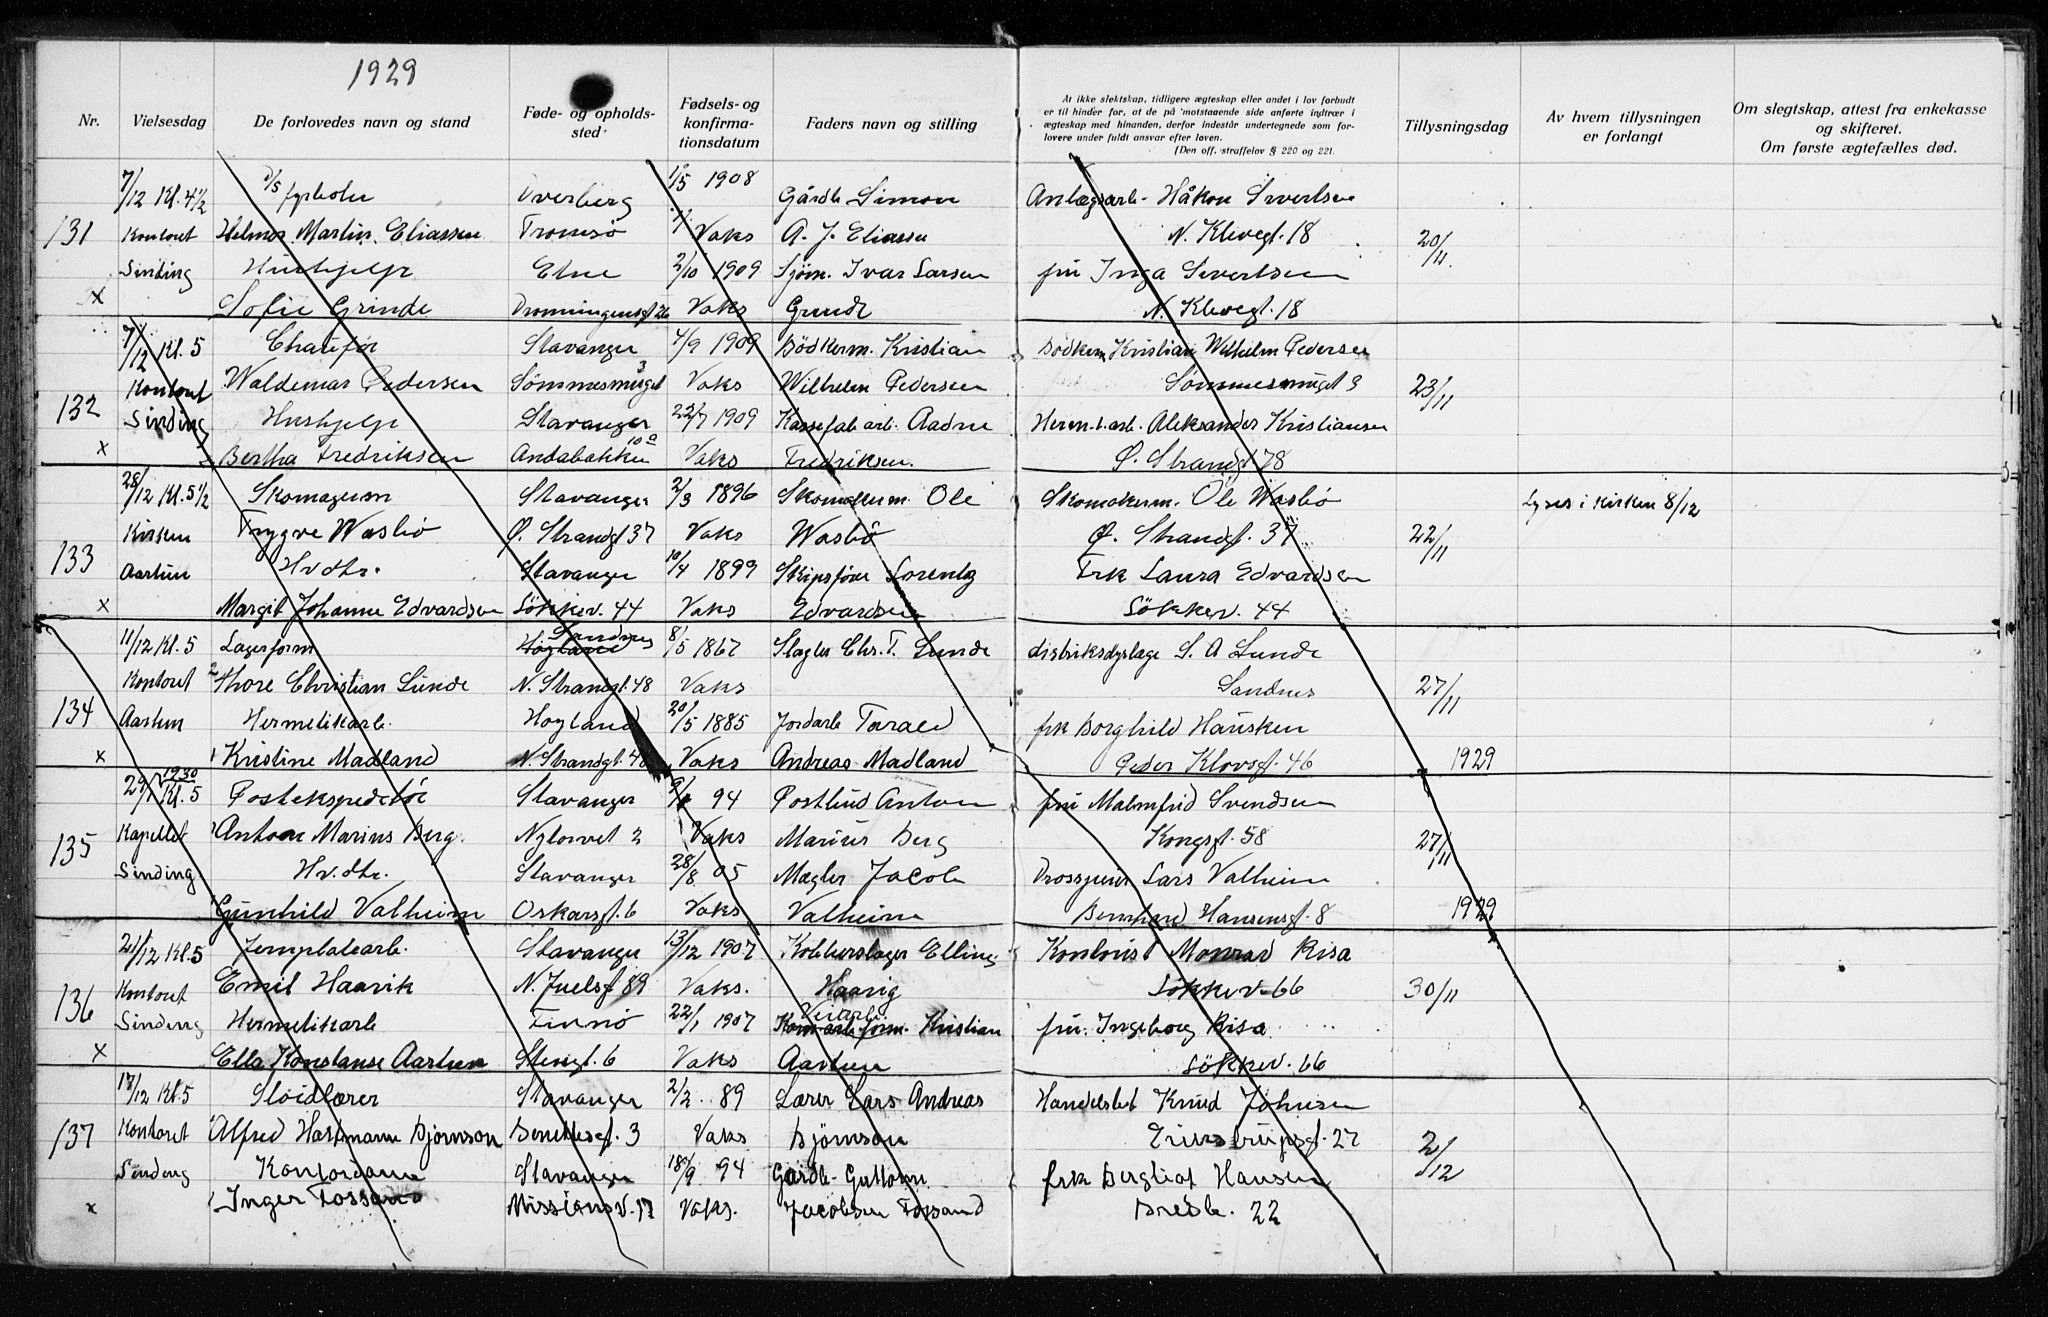 1929
Nr. Vielsesdag De forlovedes navn og stand Føde- og opholds-sted Fødsels- og konfirma-tionsdatum Faders navn og stilling
At ikke slektskap, tidligere ægteskap eller andet i lov forbudt
er til hinder for, at de på motstaaende side anførte indtrær i
ægteskap med hinanden, derfor indestår undertegnede som for-
lovere under fuldt ansvar efter loven.
(Den off. straffelov § 220 og 221.
Tillysningsdag Av hvem tillysningen er forlangt Om slegtskap, attest fra enkekasse og skifteret. Om første ægtefælles død.
7/12 Kl. 4½ fyrbøter Overberg 1/5 1908 Gårdb Simon Anlægsarb. Håkon Sivertsen
131 Kontoret Helmer Martin Eliassen Tromsø Vaks A. J. Eliassen N. Klevegt. 18 20/11
Sinding Hushjelp Etne 2/10 1909 Sjøm. Ivar Larsen fru Inga Sivertsen
x Sofie Grinde Dronningensgt 26 Vaks Grinde N. Klevegt. 18
7/12 Kl. 5 Chaufør Stavanger 4/9 1909 Bødkerm. Kristian Bødkerm Kristian Wilhelm Pedersen
132 Kontoret Waldemar Pedersen Vaks Wilhelm Pedersen 23/11
Sinding Hushjelp Stavanger 22/7 1909 Kassefab arb. Aadne Herm.t.arb. Aleksander Kristiansen
x Bertha Fredriksen Andabakken 10 a Vaks Fredriksen. Ø. Strandgt 78
28/12 Kl. 5½ Skomagerm Stavanger 2/3 1896 Skomakerm. Ole Skomakerm. Ole Wasbø Lyses i kirken 8/12
133 Kirken Trygve Wasbø Ø. Strandgt 37 Vaks Wasbø Ø. Strandgt. 37 22/11
Aarthun Hv. dtr. Stavanger 10/4 1899 Skipsfører Lorentz Frk Laura Edvardsen
x Margit Johanne Edvardsen Løkkev. 44 Vaks Edvardsen Løkkev. 44
11/12 Kl. 5 Lagerform Høyland Sandnes 8/5 1867 Slagter Chr. T. Lunde distriksdyrlæge S. A Lunde
134 Kontoret Thore Christian Lunde N. Strandgt. 48 Vaks Sandnes 27/11
Aarthun Hermetikarb. Hoyland 20/5 1885 Jordarb Tarald frk Borghild Hausken
x Kristine Madland N. Strandgt. 48 Vaks Andreas Madland Peder Klowsgt. 46 1929
29/1 1930 Kl. 5 Postekspeditør Stavanger 94 Postbud Anton fru Malmfrid Svendsen
135 Kapellet Anton Marius Berg. Nytorvet 2 Vaks Marius Berg Kongsgt. 58 27/11
Sinding Hv. dtr. Stavanger 28/8 05 Mægler Jacob Lars Valheim
Gunhild Valheim Oskarsgt. 6 Vaks Valheim Bernhard Hansensgt. 8 1929
21/12 Kl. 5 Jernplatearb. Stavanger 13/12 1907 Kobberslager Elling Kontorist Monrad Risa
136 Kontoret Emil Haavik N. Juelsgt 89 Vaks. Haavig Løkkev. 66 30/11
Sinding Hermetikarb Finnø 22/1 1907 Kristian fru. Ingeborg Risa
x Ella Konstanse Aarthun Stengt. 6 Vaks Aarthun Løkkev. 66
17/12 Kl. 5 Sløidlærer Stavanger 2/2 89 Lærer Lars Andreas Handelsbet Knud Johnsen
137 Kontoret Alfred Hartmann Bjørnson Benettersgt. 3 Vaks Bjørnson Erichstrupsgt. 27 2/12
Sinding Kontordame Stavanger 18/9 94 Gårdb. Guttorm frk Bergliot Hansen
x Inger Fossand Missionsv. 17 Vaks. Jacobsen Fossand Bredb. 22